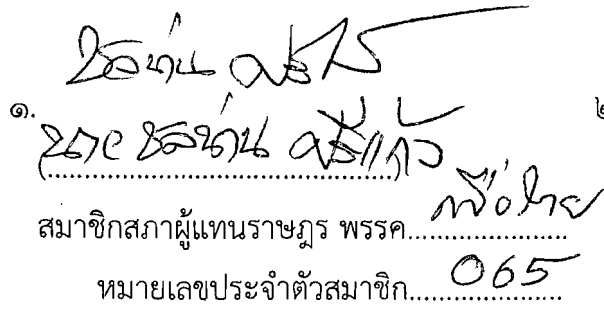 ชลน่าน ศรี
๑. นายชลน่าน ศรีแก้ว
(..................................................)
สมาชิกสภาผู้แทนราษฎร พรรค...เพื่อไทย...
หมายเลขประจำตัวสมาชิก...065...
๒